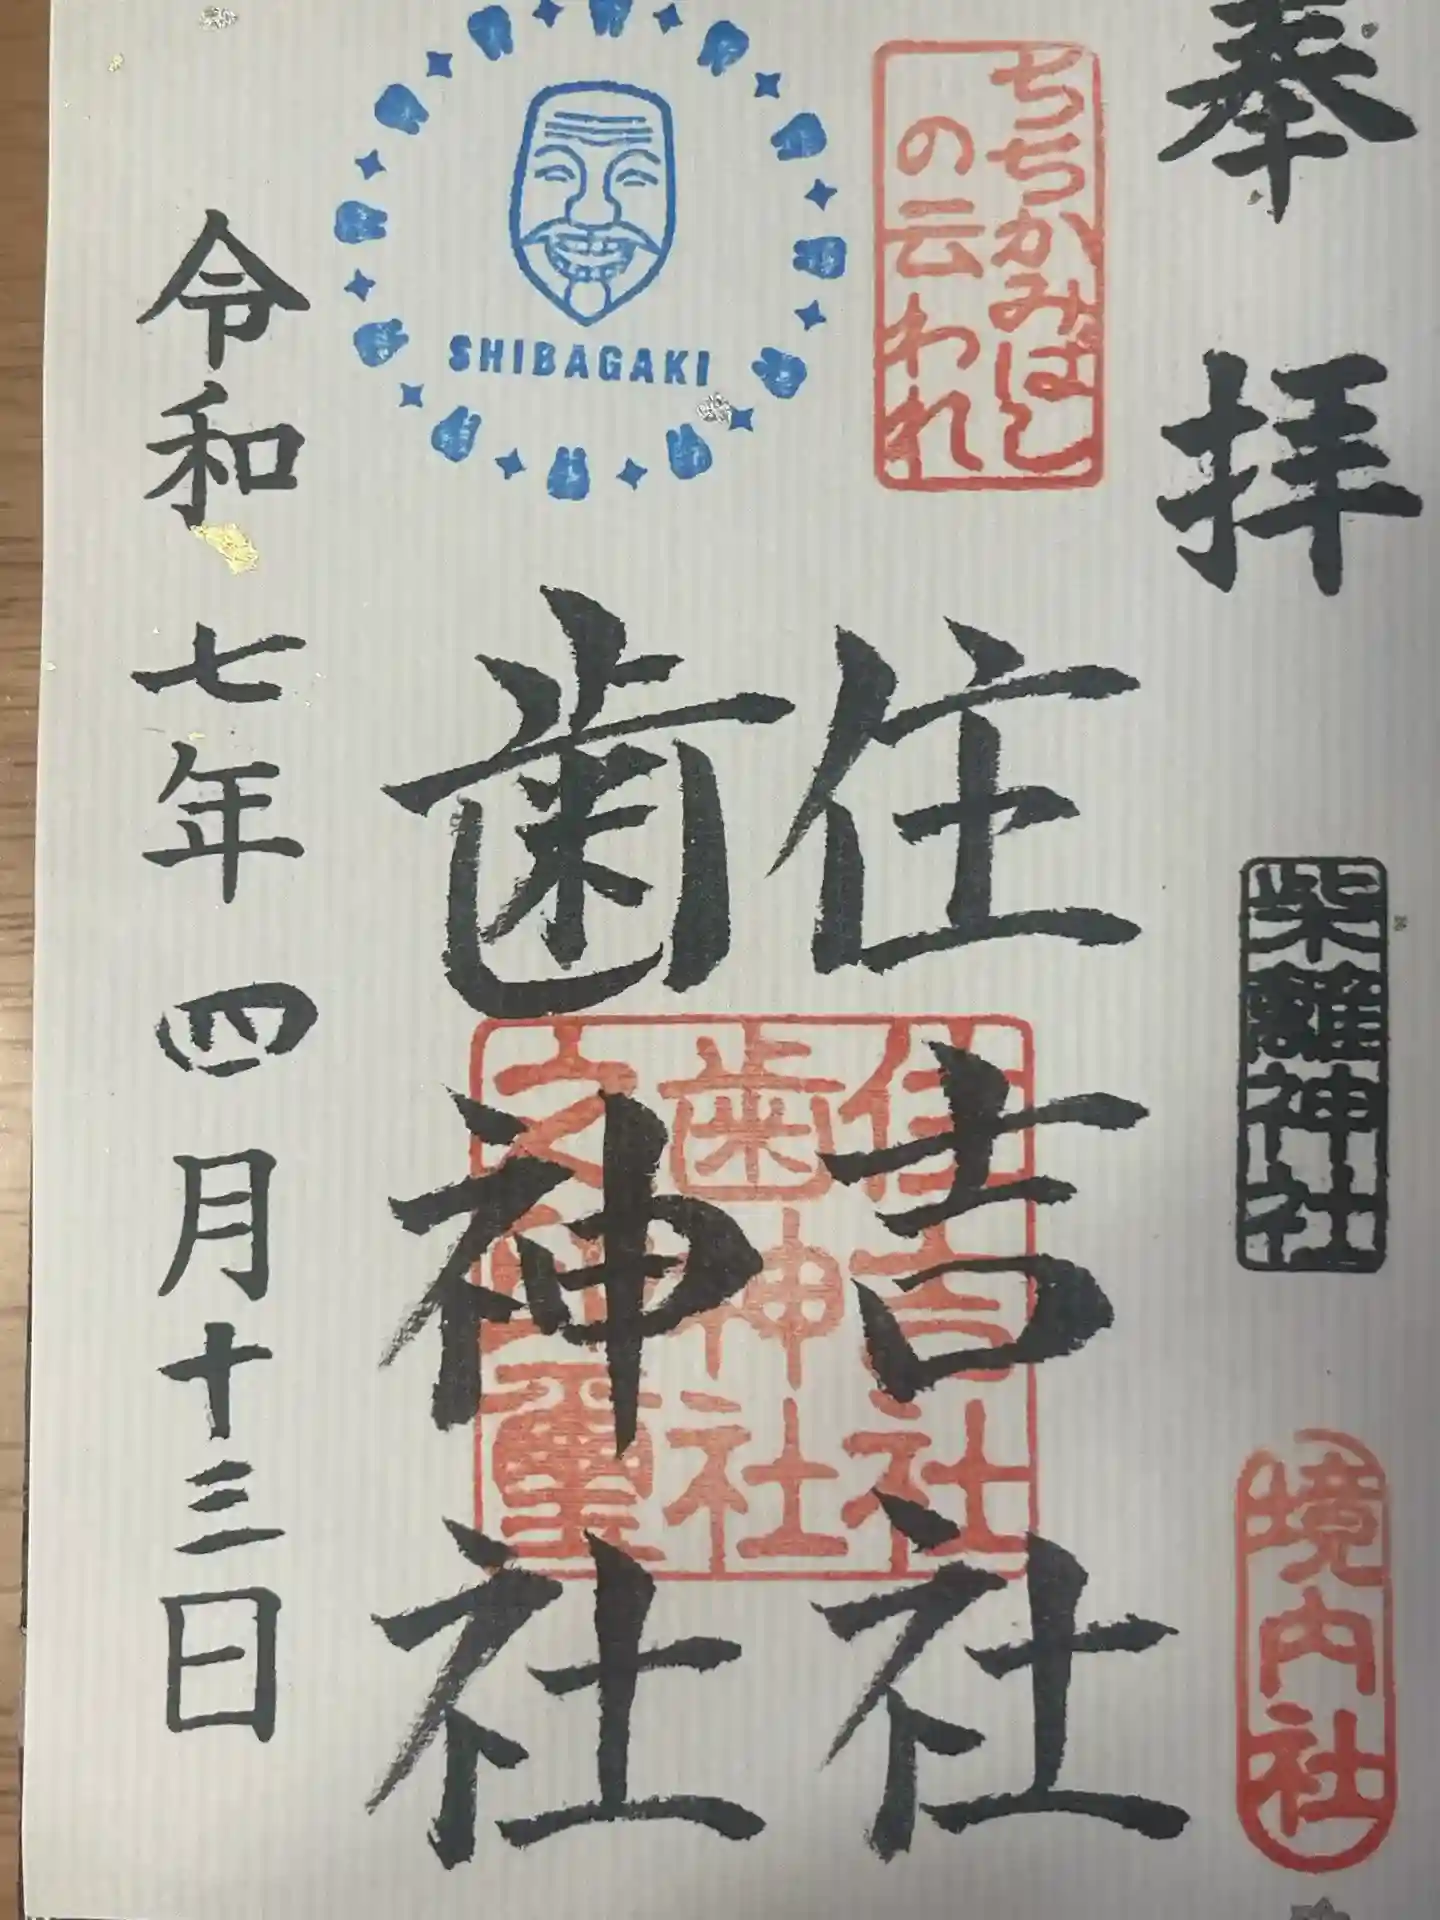 奉拝
柴籬神社
境内社
ちちかみはし
の云われ
住吉社
歯神社
住吉社
歯神社
SHIBAGAKI
令和七年四月十三日